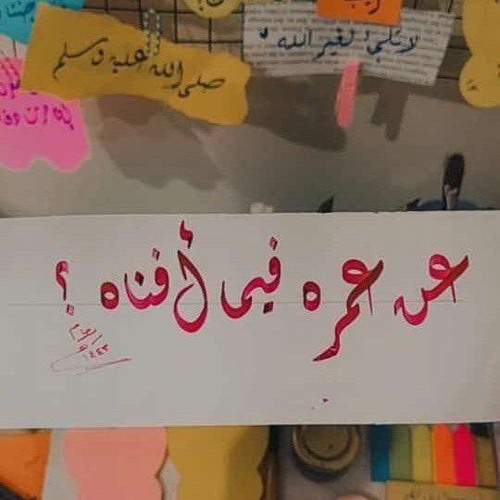 صلى الله عليه وسلم
لا تلجئ لغير الله
عن عمره فيما أفناه ؟
١٤٤٣